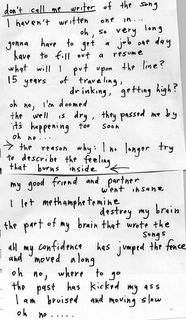 don't call me writer of the song
I haven't written one in...
oh, so very long
gonna have to get a job one day
have to fill out a resume
what will I put upon the line?
15 years of traveling,
drinking, getting high?
oh no, I'm doomed
the well is dry, they passed me by
it's happening too soon
oh no...
→ the reason why: I no longer try
to describe the feeling
that burns inside ←
my good friend and partner
went insane
I let methamphetemine
destroy my brain
the part of my brain that wrote the
songs
all my confidence has jumped the fence
and moved along
oh no, where to go
the past has kicked my ass
I am bruised and moving slow
oh no.....